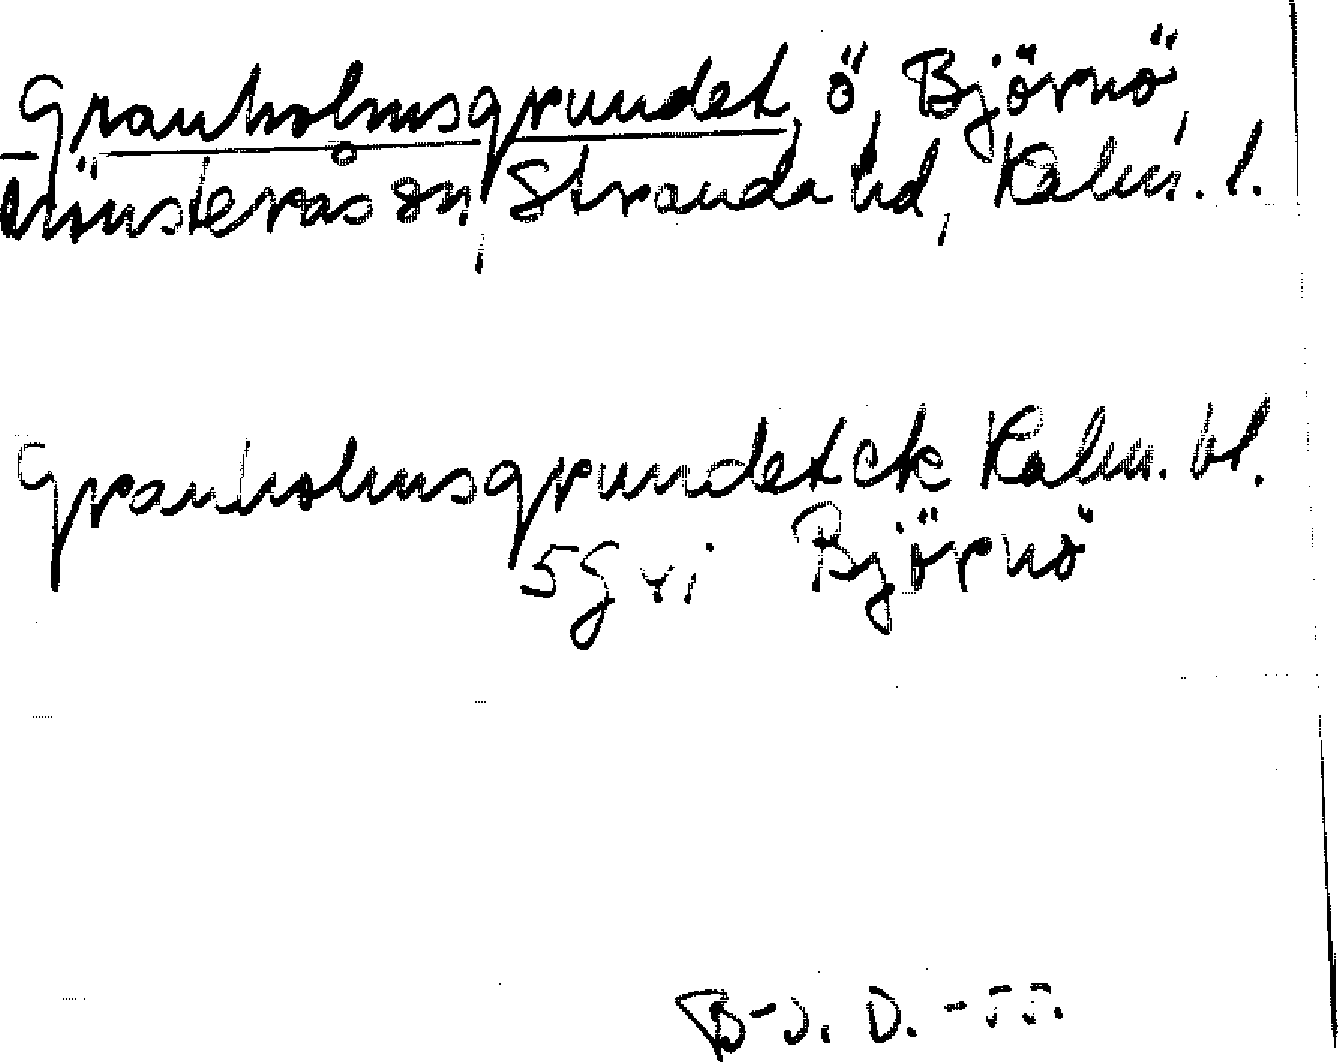 Granholmsgrundet, ö, Björnö,
Mönsterås sn, Stranda hd, Kalm. l.
Granholmsgrundet ek Kalm. bl.
5g vi Björnö
B-J. D. -55.